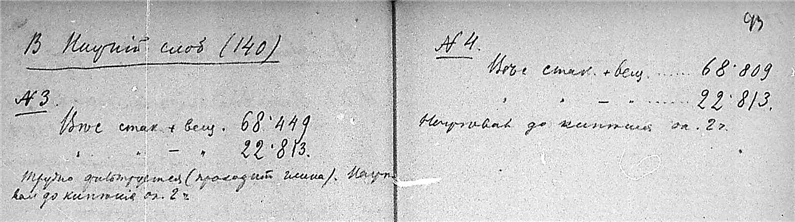 В
слоб (140)
№3.
Вѣс стак + вещ. 68.449
" " — " 22.813.
Трудно фильтруется (проходит глина). Нагр
вал до кипѣния ок. 2 ч
93
№4.
Вѣс стак. + вещ. ...... 68.809
" " — " ...... 22.813.
до кипѣния ок. 2 ч.